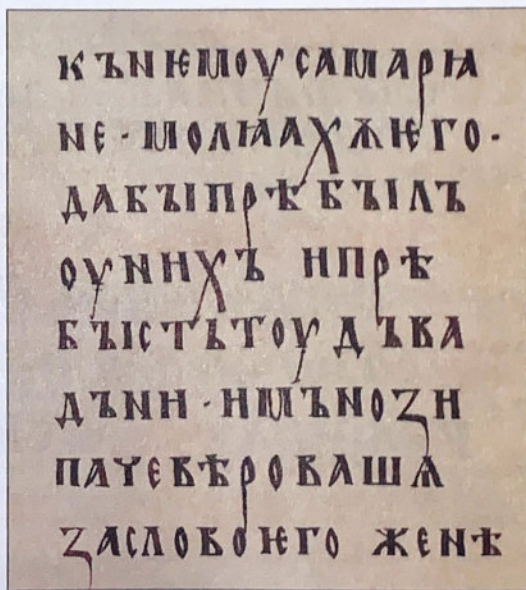 КЪНѤМОУСАМАРꙖ
НЕ · МОЛꙖАХѪѤГО ·
ДАБЪІПРѢБЪІЛЪ
ОУНИХЪ ИПРѢ
БЪІСТЬТОУДЪВА
ДЪНИ · ИМЪНОЗИ
ПАЧЕВѢРОВАШѦ
ЗАСЛОВОѤГО ЖЕНѢ